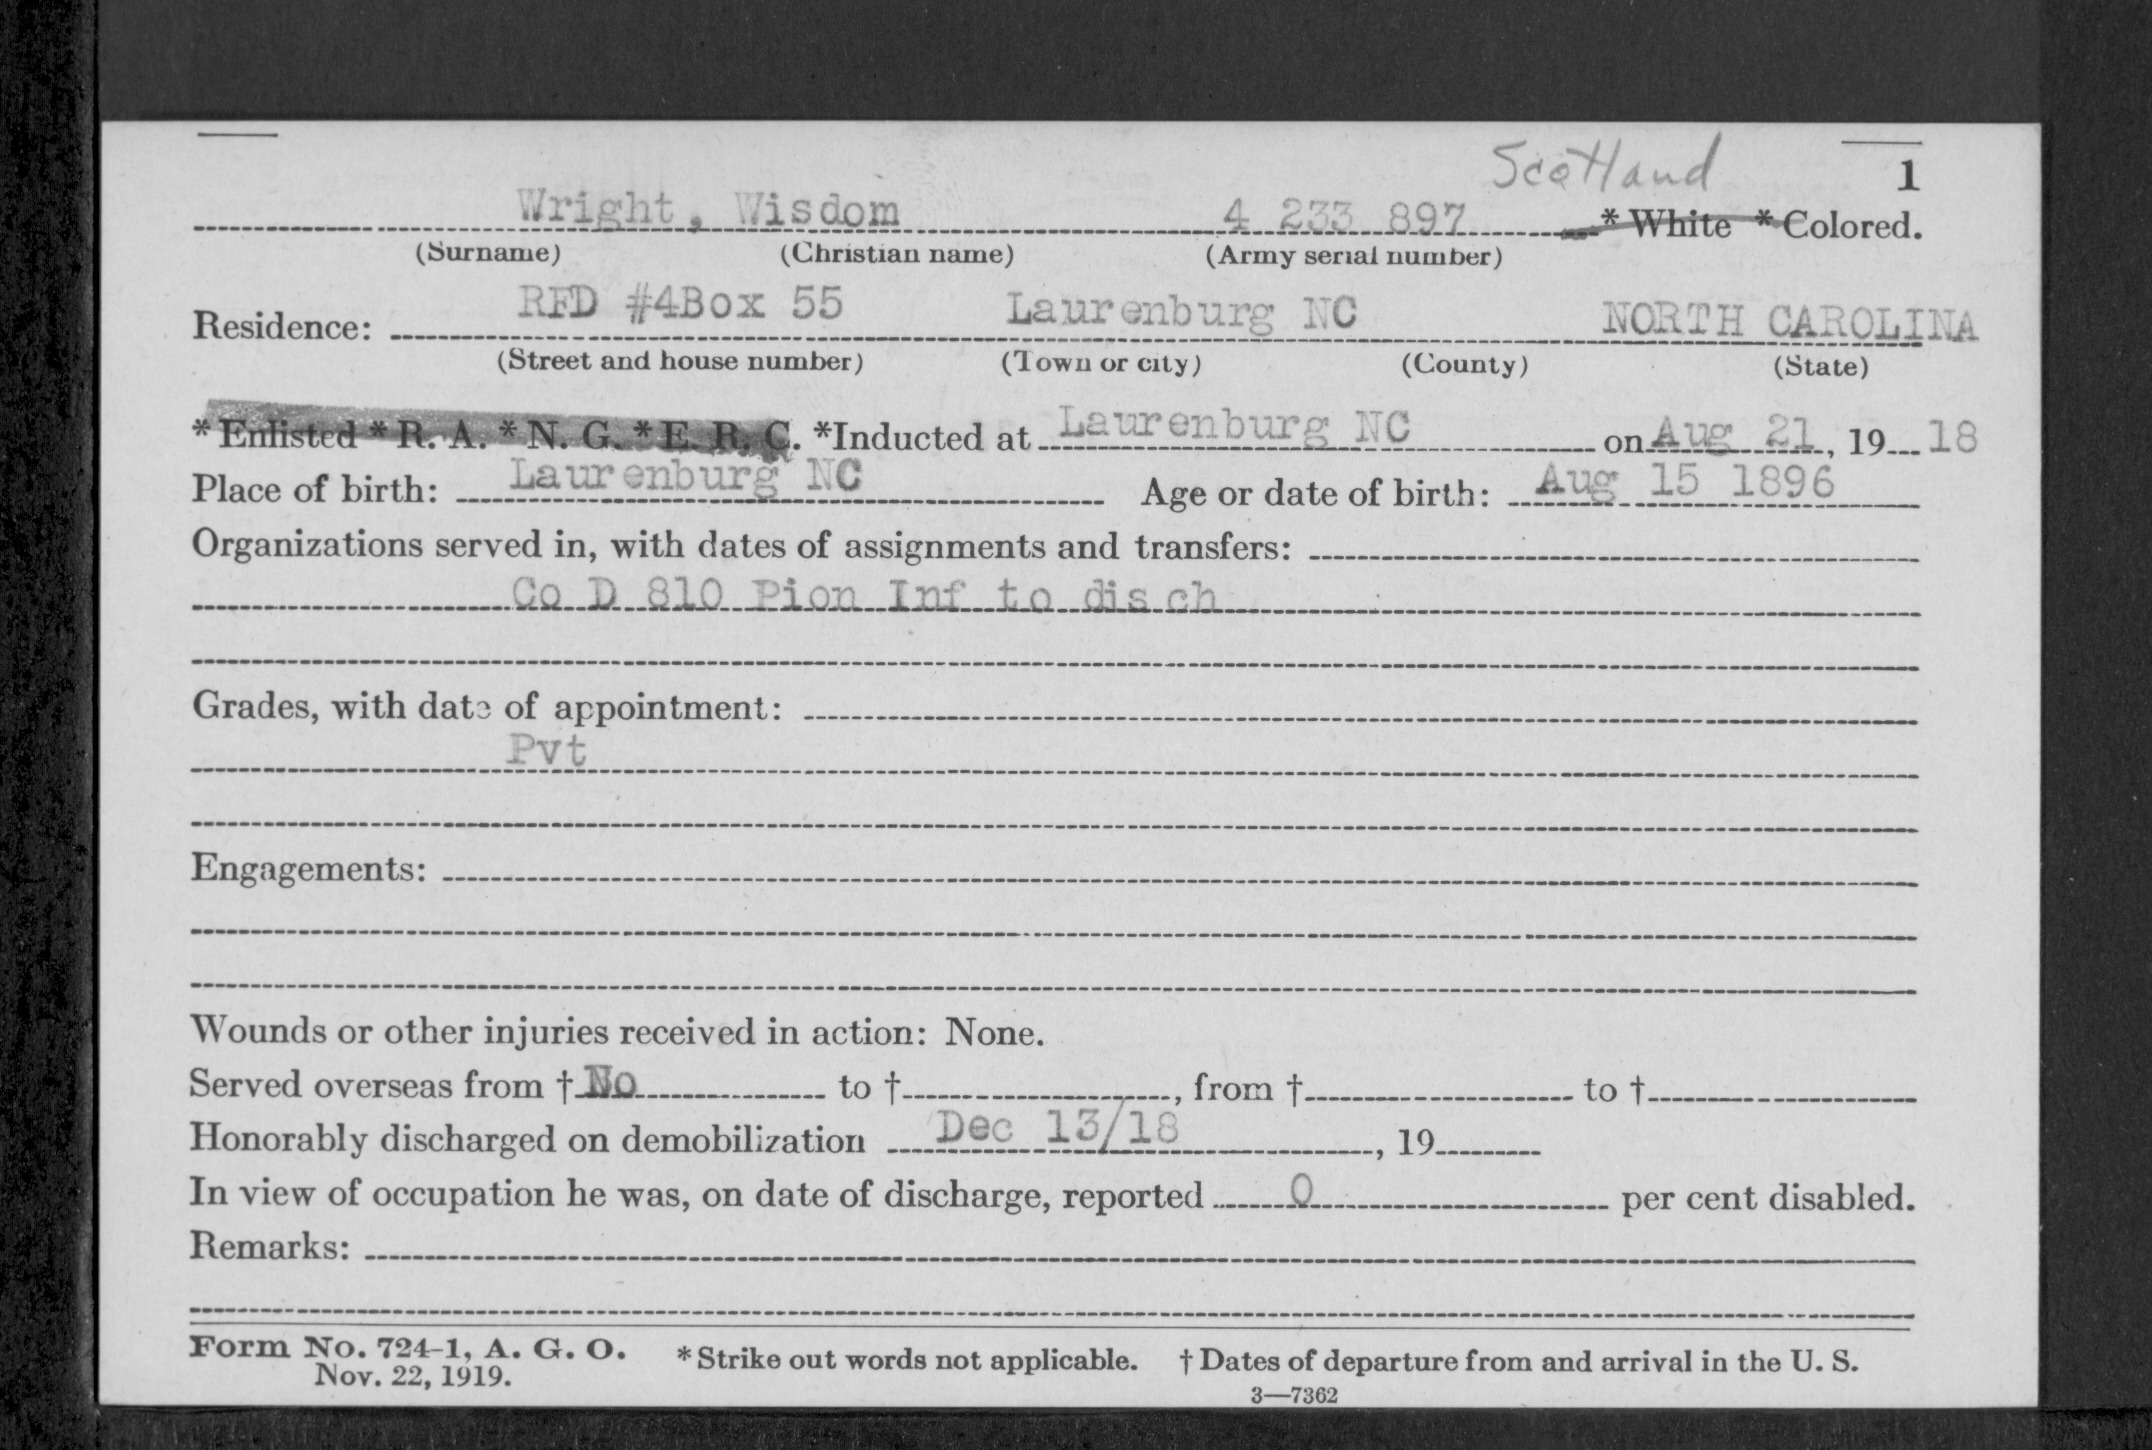 Scotland
1
Wright, Wisdom 4 233 897 * White * Colored.
(Surname) (Christian name) (Army serial number)
Residence: RFD #4Box 55 Laurenburg NC NORTH CAROLINA
(Street and house number) (Town or city) (County) (State)
* Enlisted * R. A. * N. G. * E. R. C. *Inducted at Laurenburg NC on Aug 21, 19 18
Place of birth: Laurenburg NC Age or date of birth: Aug 15 1896
Organizations served in, with dates of assignments and transfers:
Co D 810 Pion Inf to disch
Grades, with date of appointment:
Pvt
Engagements:
Wounds or other injuries received in action: None.
Served overseas from † No to †, from † to †
Honorably discharged on demobilization Dec 13/18, 19
In view of occupation he was, on date of discharge, reported 0 per cent disabled.
Remarks:
Form No. 724-1, A. G. O. * Strike out words not applicable. † Dates of departure from and arrival in the U. S.
Nov. 22, 1919.
3—7362